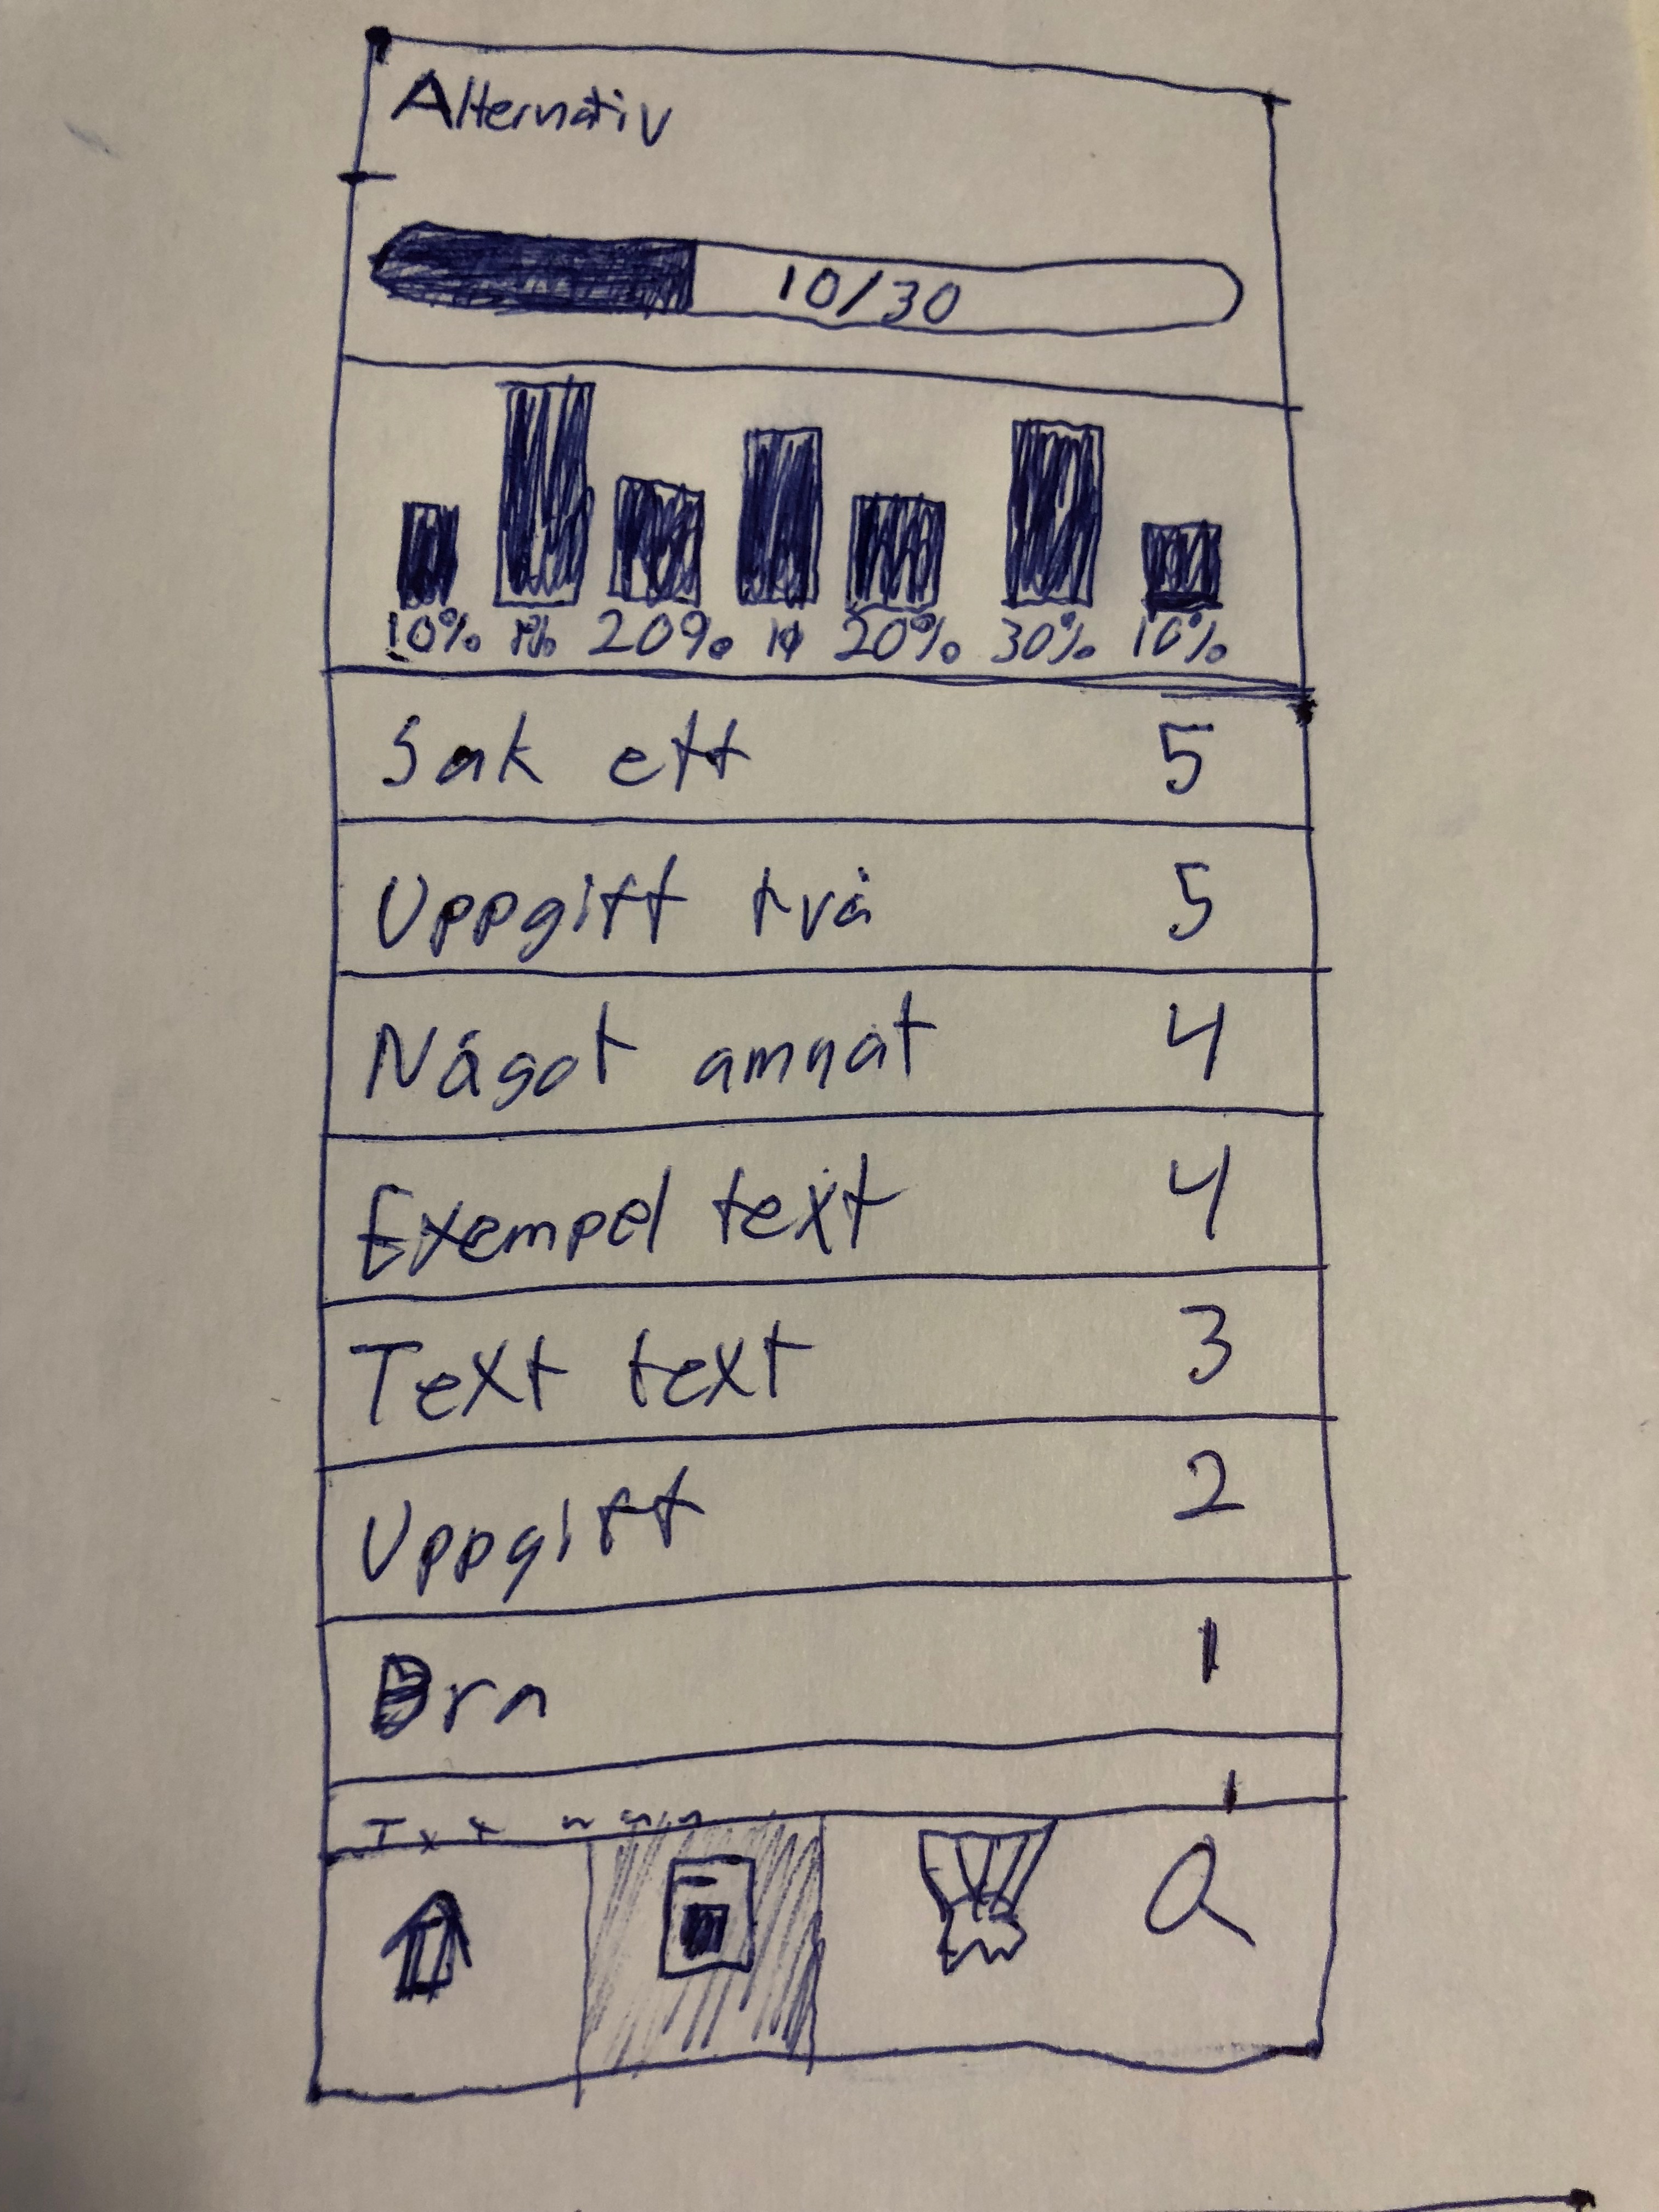 Alternativ
10/30
10% 20% 20% 30% 10%
Sak ett 5
Uppgift två 5
Något amnat 4
Exempel text 4
Text text 3
Uppgift 2
Bra 1
Txt 1